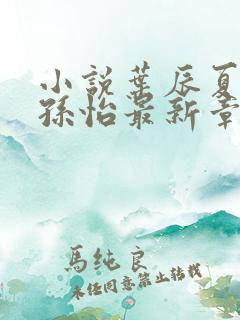 小説葉辰夏
孫怡最新章
馬純良
未任同意禁止转载